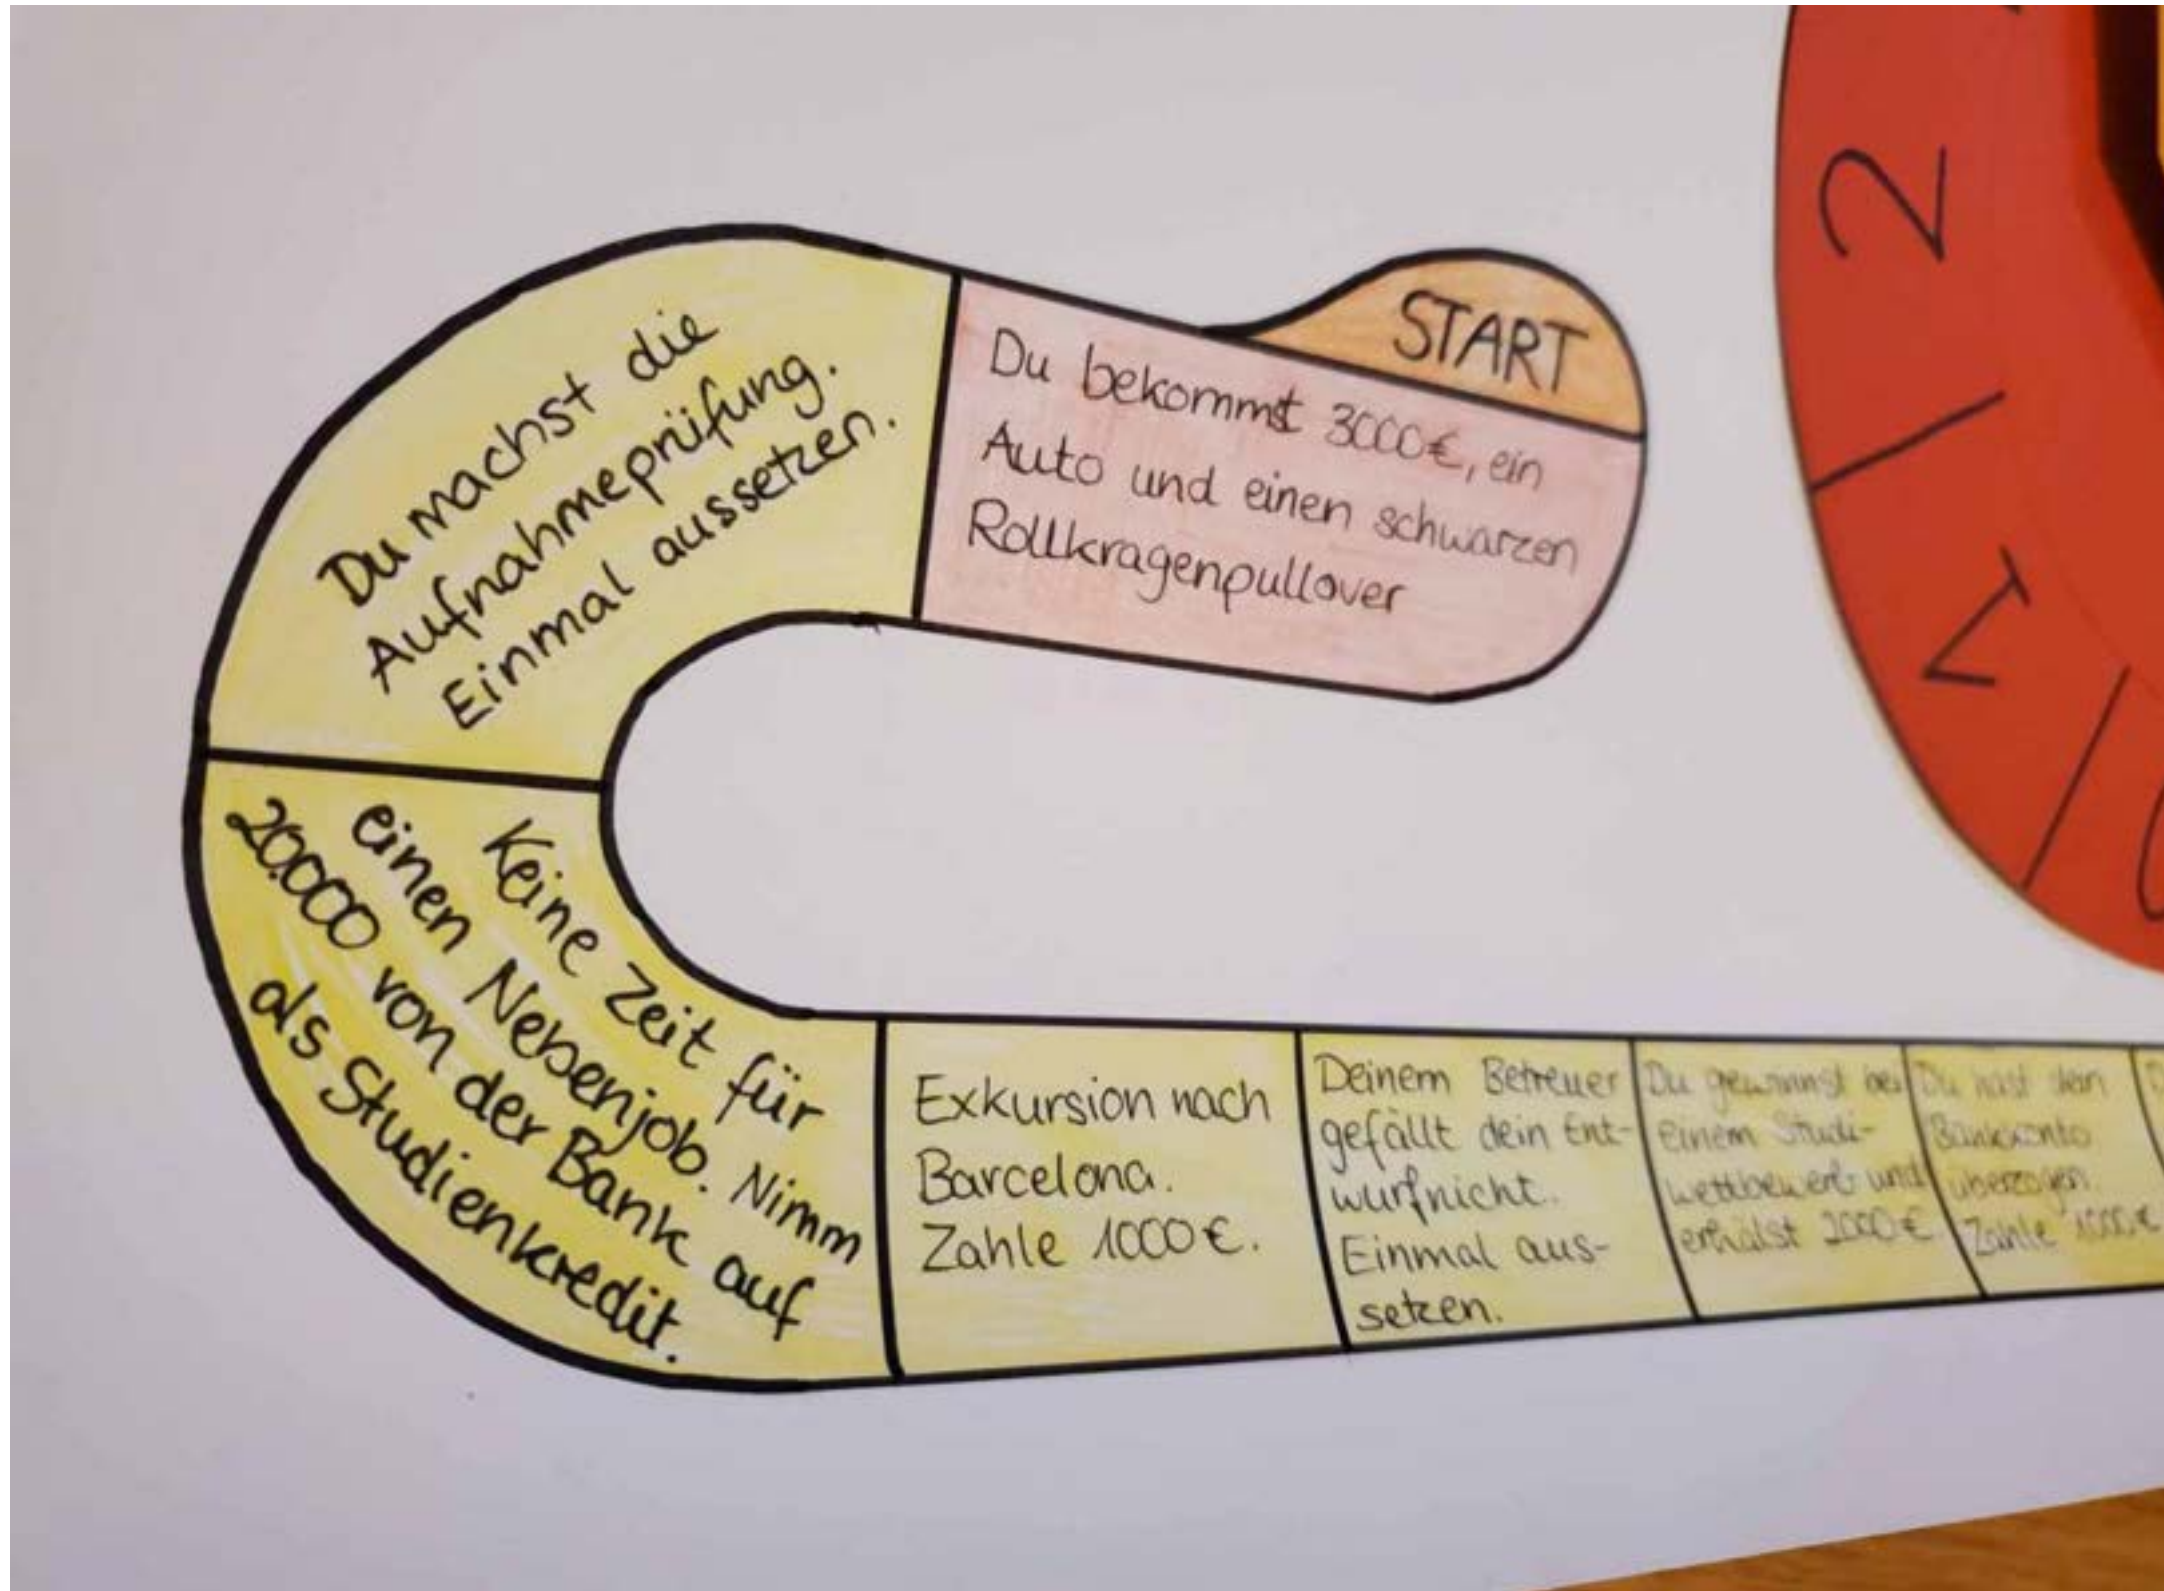 START
Du bekommst 3000€, ein
Auto und einen schwarzen
Rollkragenpullover
Du machst die
Aufnahmeprüfung.
Einmal aussetzen.
Keine Zeit für
einen Nebenjob. Nimm
20.000 von der Bank auf
als Studienkredit.
Exkursion nach
Barcelona.
Zahle 1000€.
Deinem Betreuer
gefällt dein Ent-
wurf nicht.
Einmal aus-
setzen.
Du gewinnst bei
einem Studi-
wettbewerb und
erhälst 2000€
Du hast dein
Bankkonto
überzogen.
Zahle 1000€
2
1